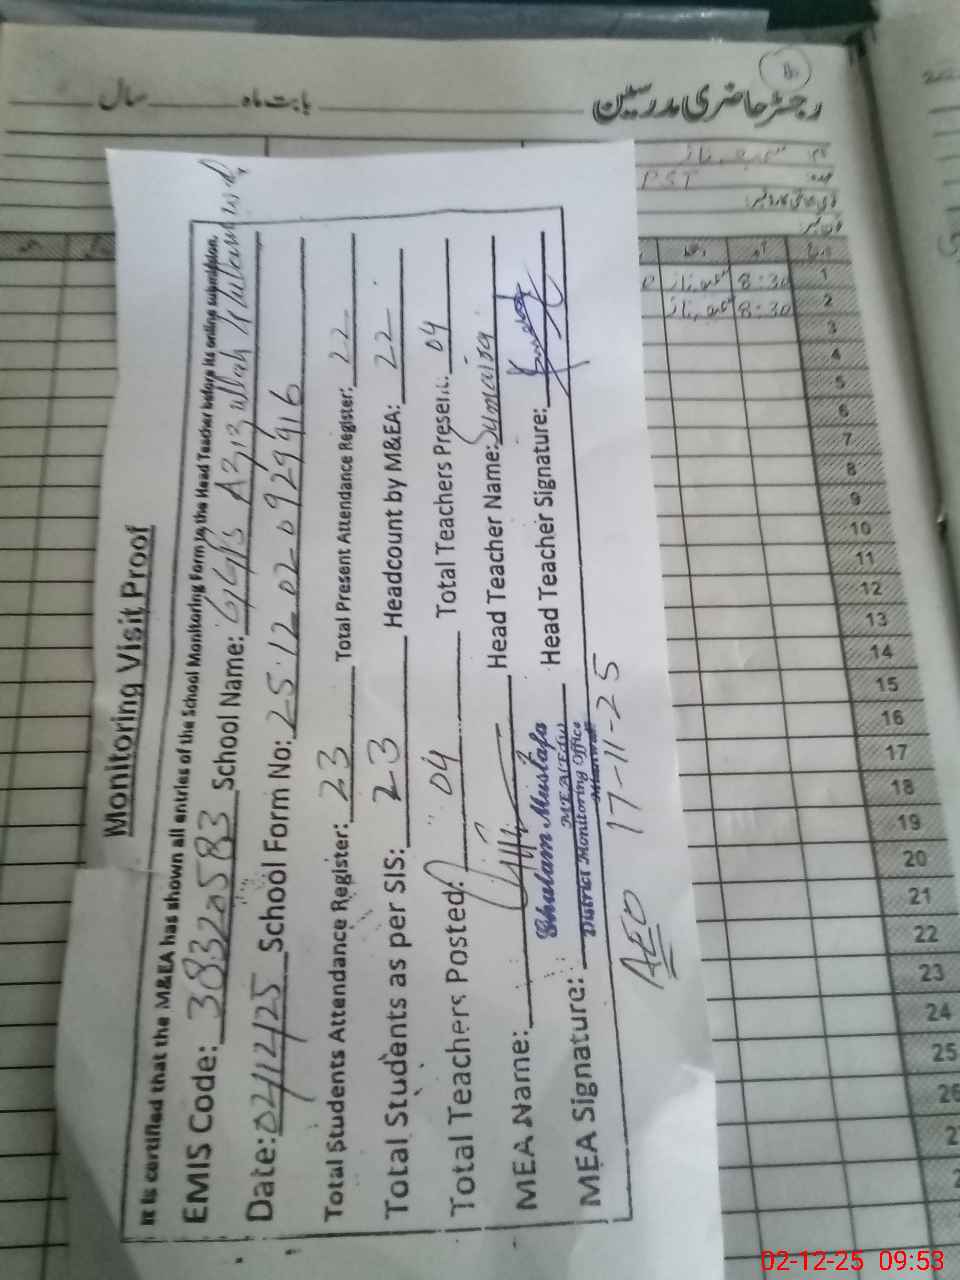 رجسٹر حاضری مدرسین
بابت ماہ سال
PST
8:30
8:30
1
2
3
4
5
6
7
8
9
10
11
12
13
14
15
16
17
18
19
20
21
22
23
24
25
26
Monitoring Visit Proof
It is certified that the M&EA has shown all entries of the School Monitoring Form to the Head Teacher before its online submission.
EMIS Code: 38320583 School Name: GGPS Azizullah
Date: 02/12/25 School Form No: 25-12-02-0929916
Total Students Attendance Register: 23 Total Present Attendance Register: 22
Total Students as per SIS: 23 Headcount by M&EA: 22
Total Teachers Posted: 04 Total Teachers Present: 04
MEA Name: Head Teacher Name: Sumaira
Ghulam Mustafa
MEA(Edu)
District Monitoring Office
Mianwali
MEA Signature: Head Teacher Signature:
AEO 17-11-25
02-12-25 09:53